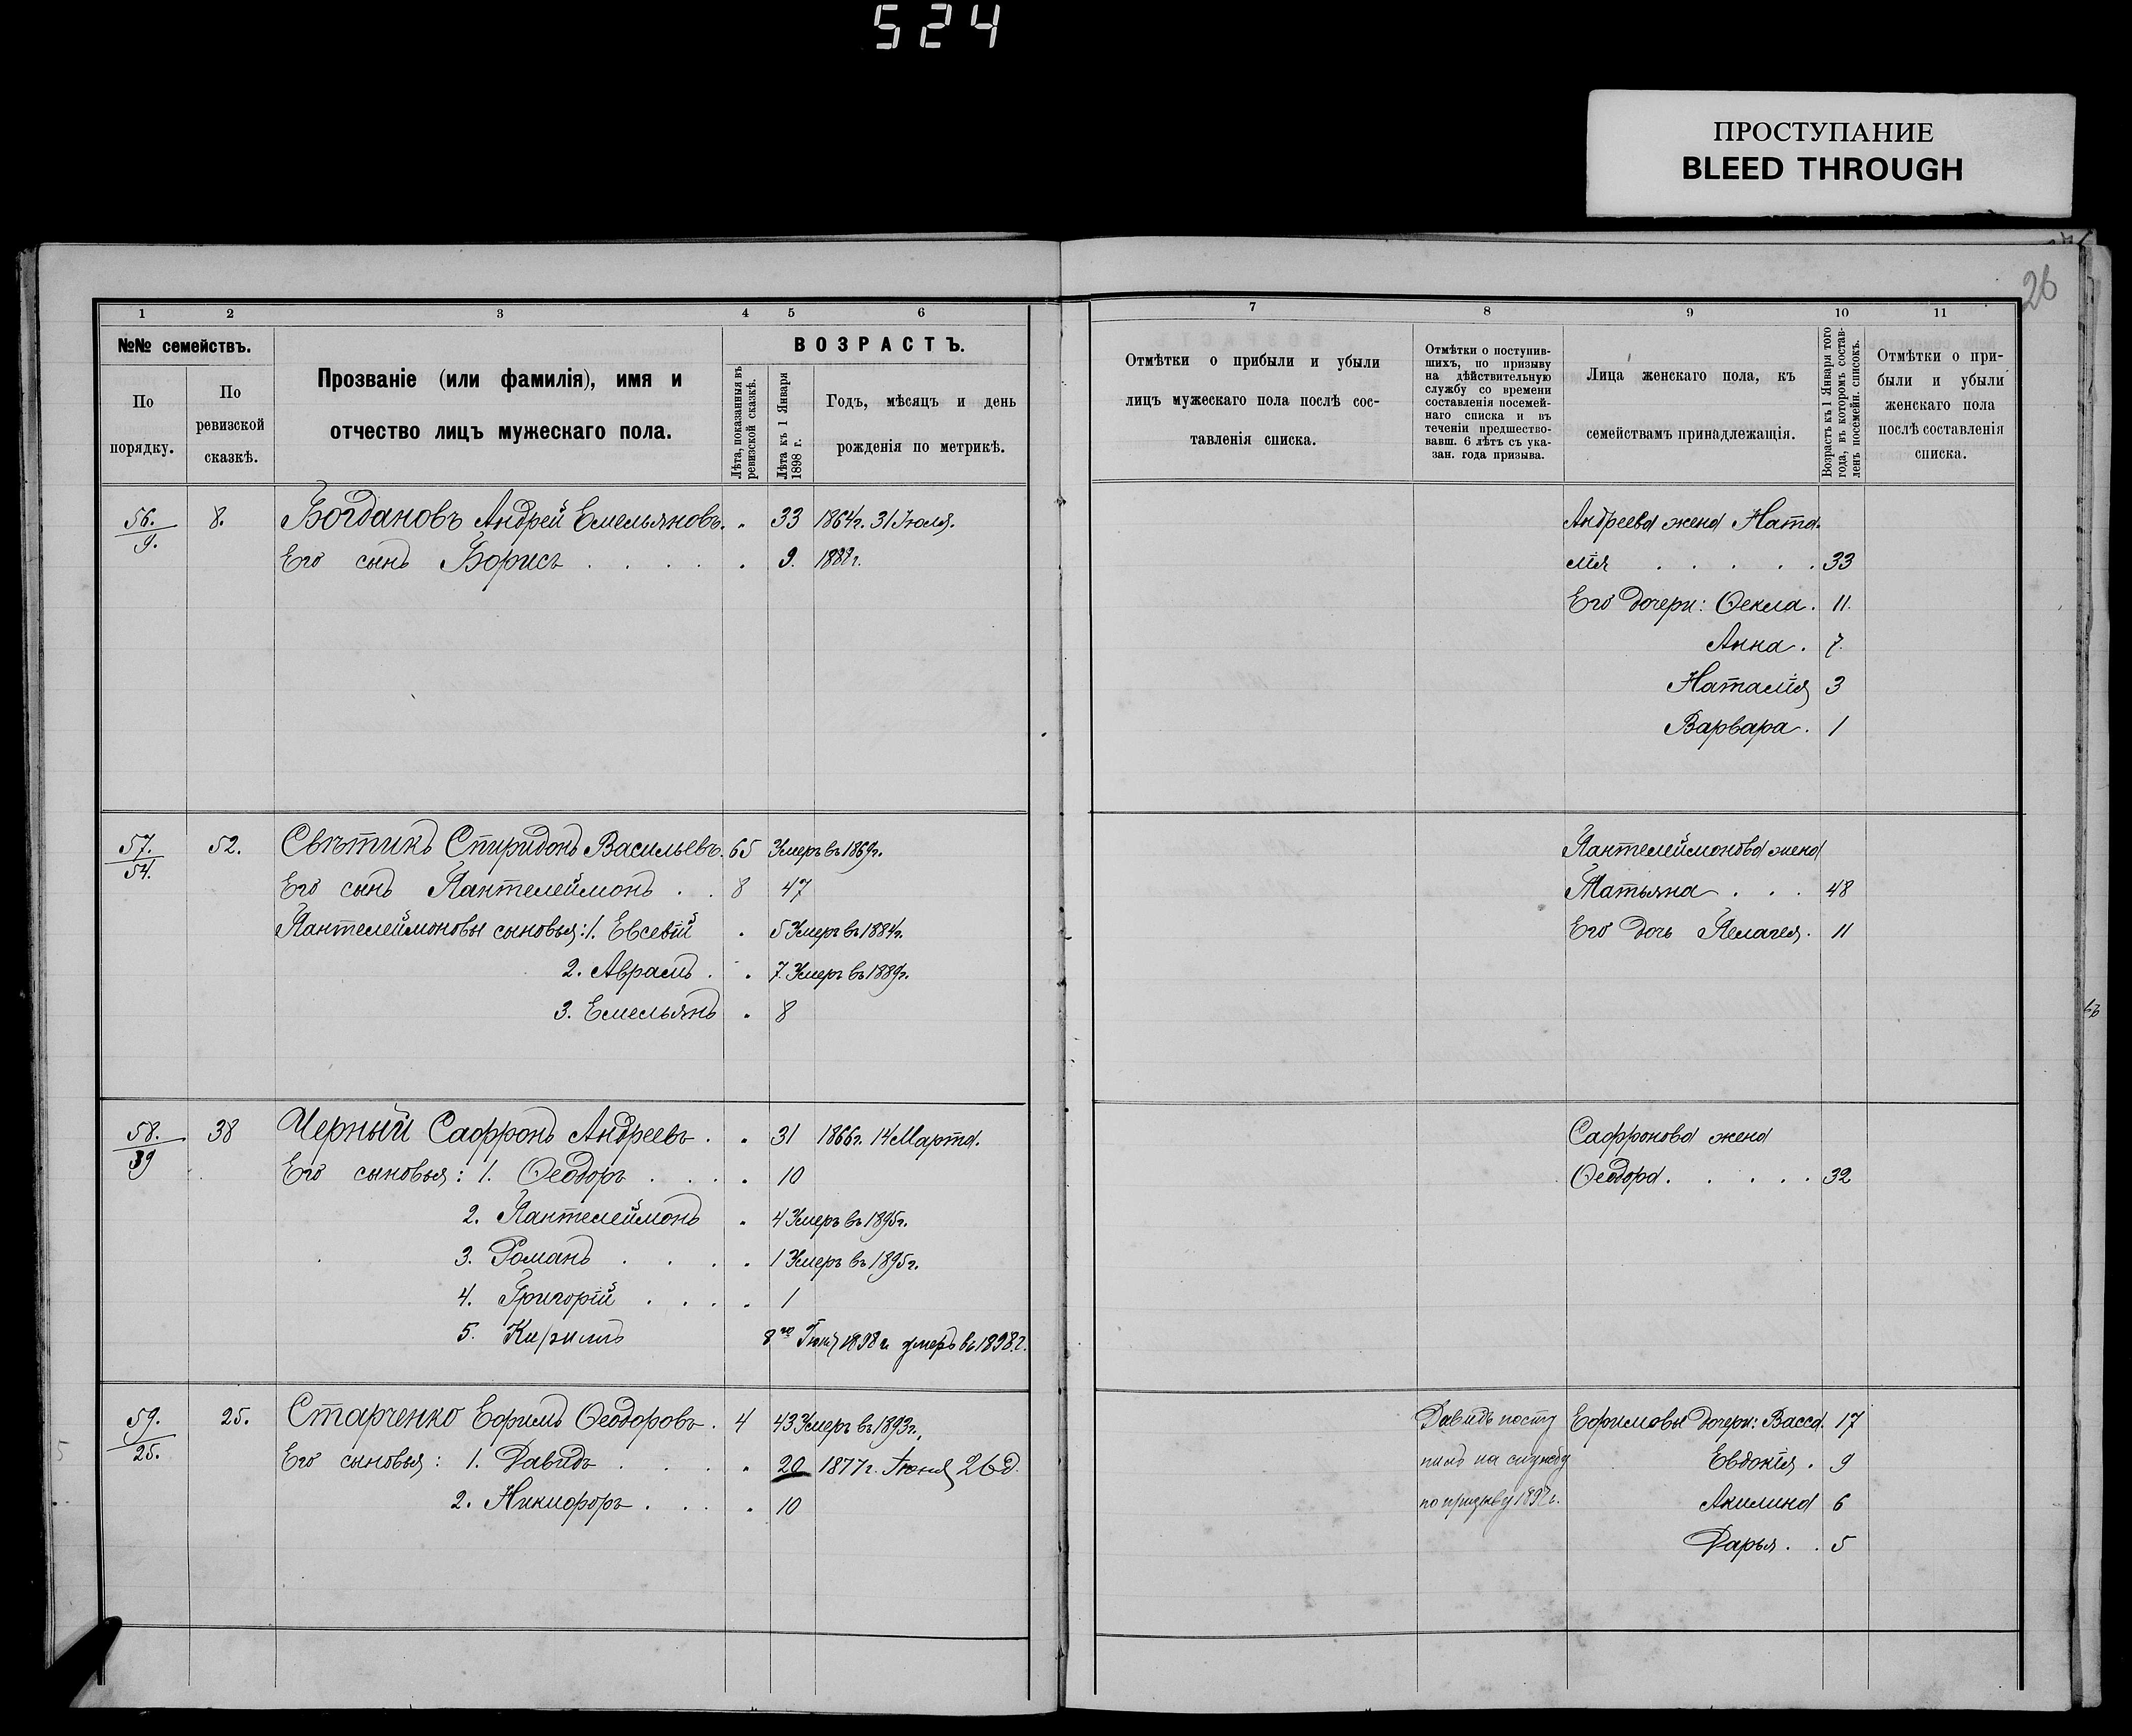 524
ПРОСТУПАНИЕ
BLEED THROUGH
26
1 2 3 4 5 6
№№ семействъ.
По порядку.
По ревизской сказкѣ.
Прозваніе (или фамилія), имя и
отчество лицъ мужескаго пола.
ВОЗРАСТЪ.
Лѣта, показанныя въ
ревизской сказкѣ.
Лѣта къ 1 Января
1898 г.
Годъ, мѣсяцъ и день
рожденія по метрикѣ.
7 8 9 10 11
Отмѣтки о прибыли и убыли
лицъ мужескаго пола послѣ сос-
тавленія списка.
Отмѣтки о поступив-
шихъ, по призыву
на дѣйствительную
службу со времени
составленія посемей-
наго списка и въ
теченіи предшество-
вавш. 6 лѣтъ съ ука-
зан. года призыва.
Лица женскаго пола, къ
семействамъ принадлежащія.
Возрастъ къ 1 Января того
года, въ которомъ состав-
ленъ посемейн. списокъ.
Отмѣтки о при-
были и убыли
женскаго пола
послѣ составленія
списка.
56. 8. Богдановъ Андрей Емельяновъ. . 33 1864г. 31 Іюля.
9.
Его сынъ Борисъ . . . . . 9. 1888г.
Андреева жена Ната-
лія . . . . . 33
Его дочери: Ѳекла. 11.
Анна. 7.
Наталія 3
Варвара. 1
57. 52. Свѣтикъ Спиридонъ Васильевъ. 65 Умеръ въ 1869г.
54.
Его сынъ Пантелеймонъ . . 8 47
Пантелеймоновы сыновья: 1. Евсевій . 5 Умеръ въ 1884г.
2. Аврамъ . . 7. Умеръ въ 1889г.
3. Емельянъ . 8
Пантелеймонова жена
Татьяна . . . 48
Его дочь Пелагея. 11
58. 38 Черный Сафронъ Андреевъ . . 31 1866г. 14 Марта.
39
Его сыновья: 1. Ѳеодоръ . . . . 10
2. Пантелеймонъ . 4 Умеръ въ 1895г.
3. Романъ . . . . 1 Умеръ въ 1895г.
4. Григорій . . . . 1
5. Кирилъ 8го 1898 г. умеръ въ 1898.г.
Сафронова жена
Ѳеодора. . . . . 32
59. 25. Старченко Ефимъ Ѳеодоровъ . 4 43 Умеръ въ 1893г.
25.
Его сыновья: 1. Давидъ . . . . 20 1877г. Іюня 26 д.
2. Никифоръ . . . . 10
Давидъ посту
пилъ на службу
по призыву 1898г.
Ефимовы дочери: Васса. 17
Евдокія . 9
Акилина 6
Дарья . . 5